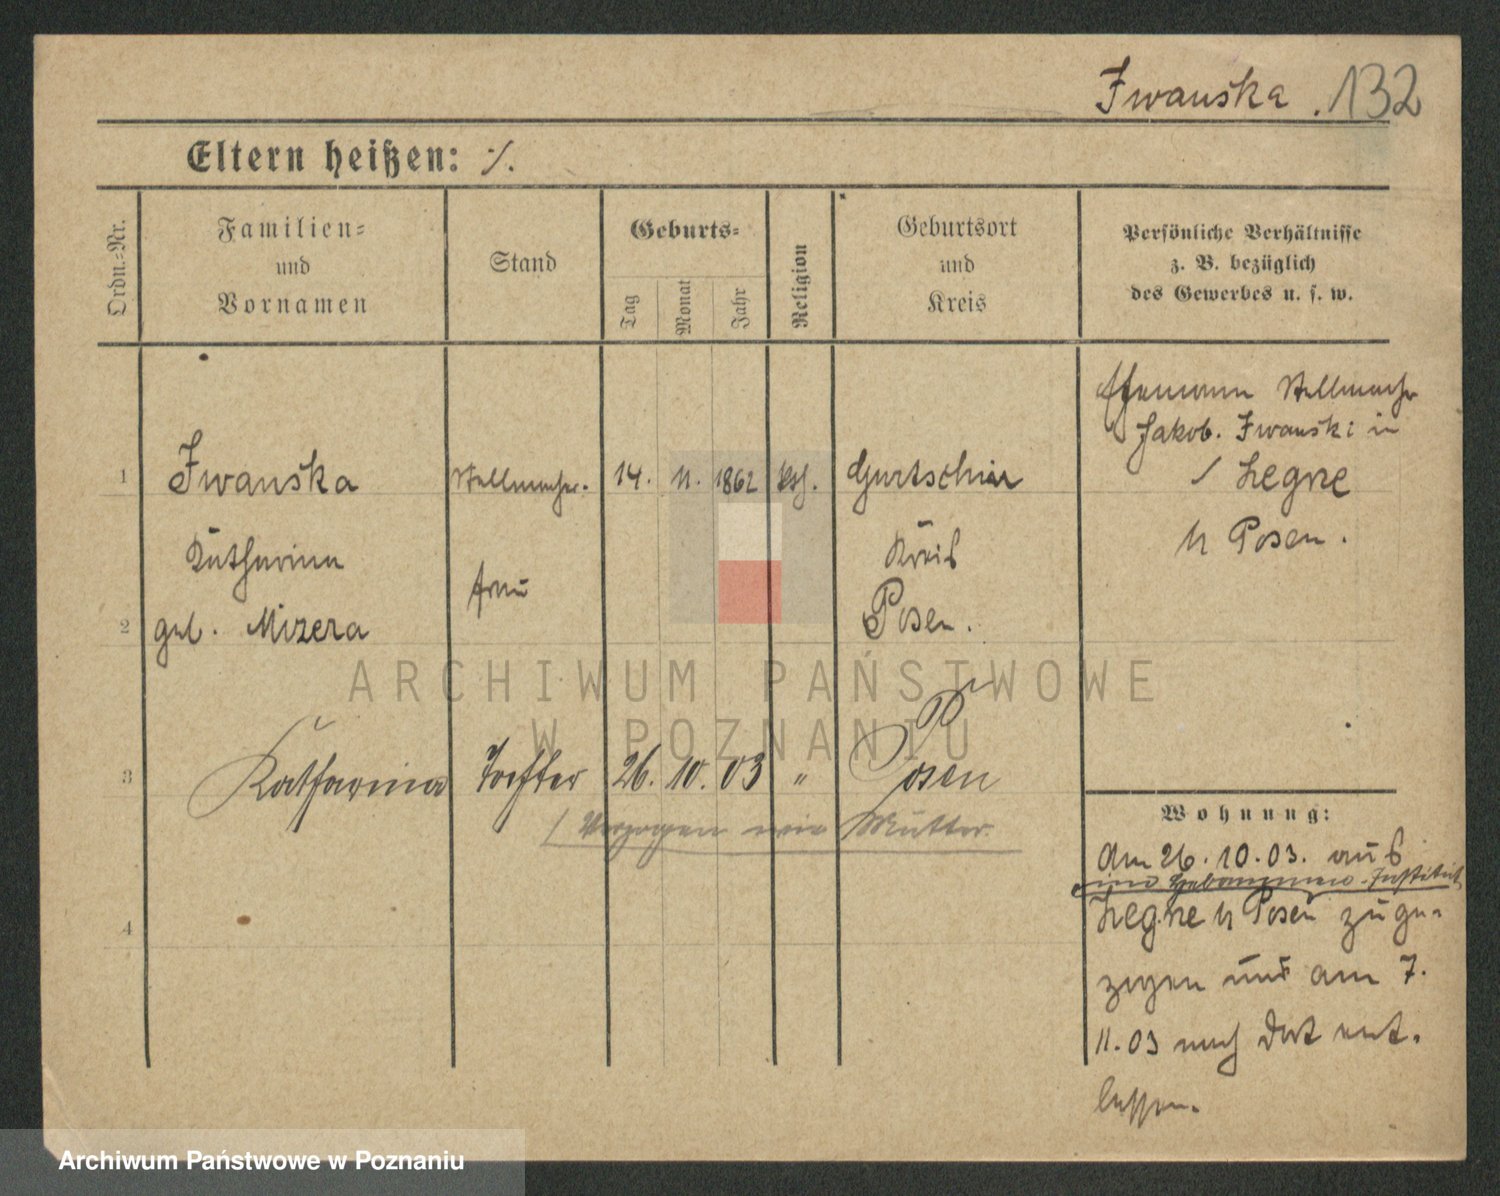 Iwanska . 132
Eltern heißen: ·/.
Ordn.=Nr.
Familien=
und
Vornamen
Stand
Geburts=
Tag
Monat
Jahr
Religion
Geburtsort
und
Kreis
Persönliche Verhältnisse
z. B. bezüglich
des Gewerbes u. s. w.
Ehemann Stellmacher
Jakob. Iwanski in
Zegrze
b Posen.
1 Iwanska Stellmacher- 14. 11. 1862 kth. Gurtschin
Katharina frau Kreis
2 geb. Mizera Posen.
3 Katharina Tochter 26. 10. 03 " Posen
Verzogen wie Mutter.
4
Wohnung:
Am 26. 10. 03. aus
ins Hebammen-Institut
Zegrze b Posen zuge-
zogen und am 7.
11. 03 nach dort ent-
lassen.
ARCHIWUM PAŃSTWOWE
W POZNANIU
Archiwum Państwowe w Poznaniu